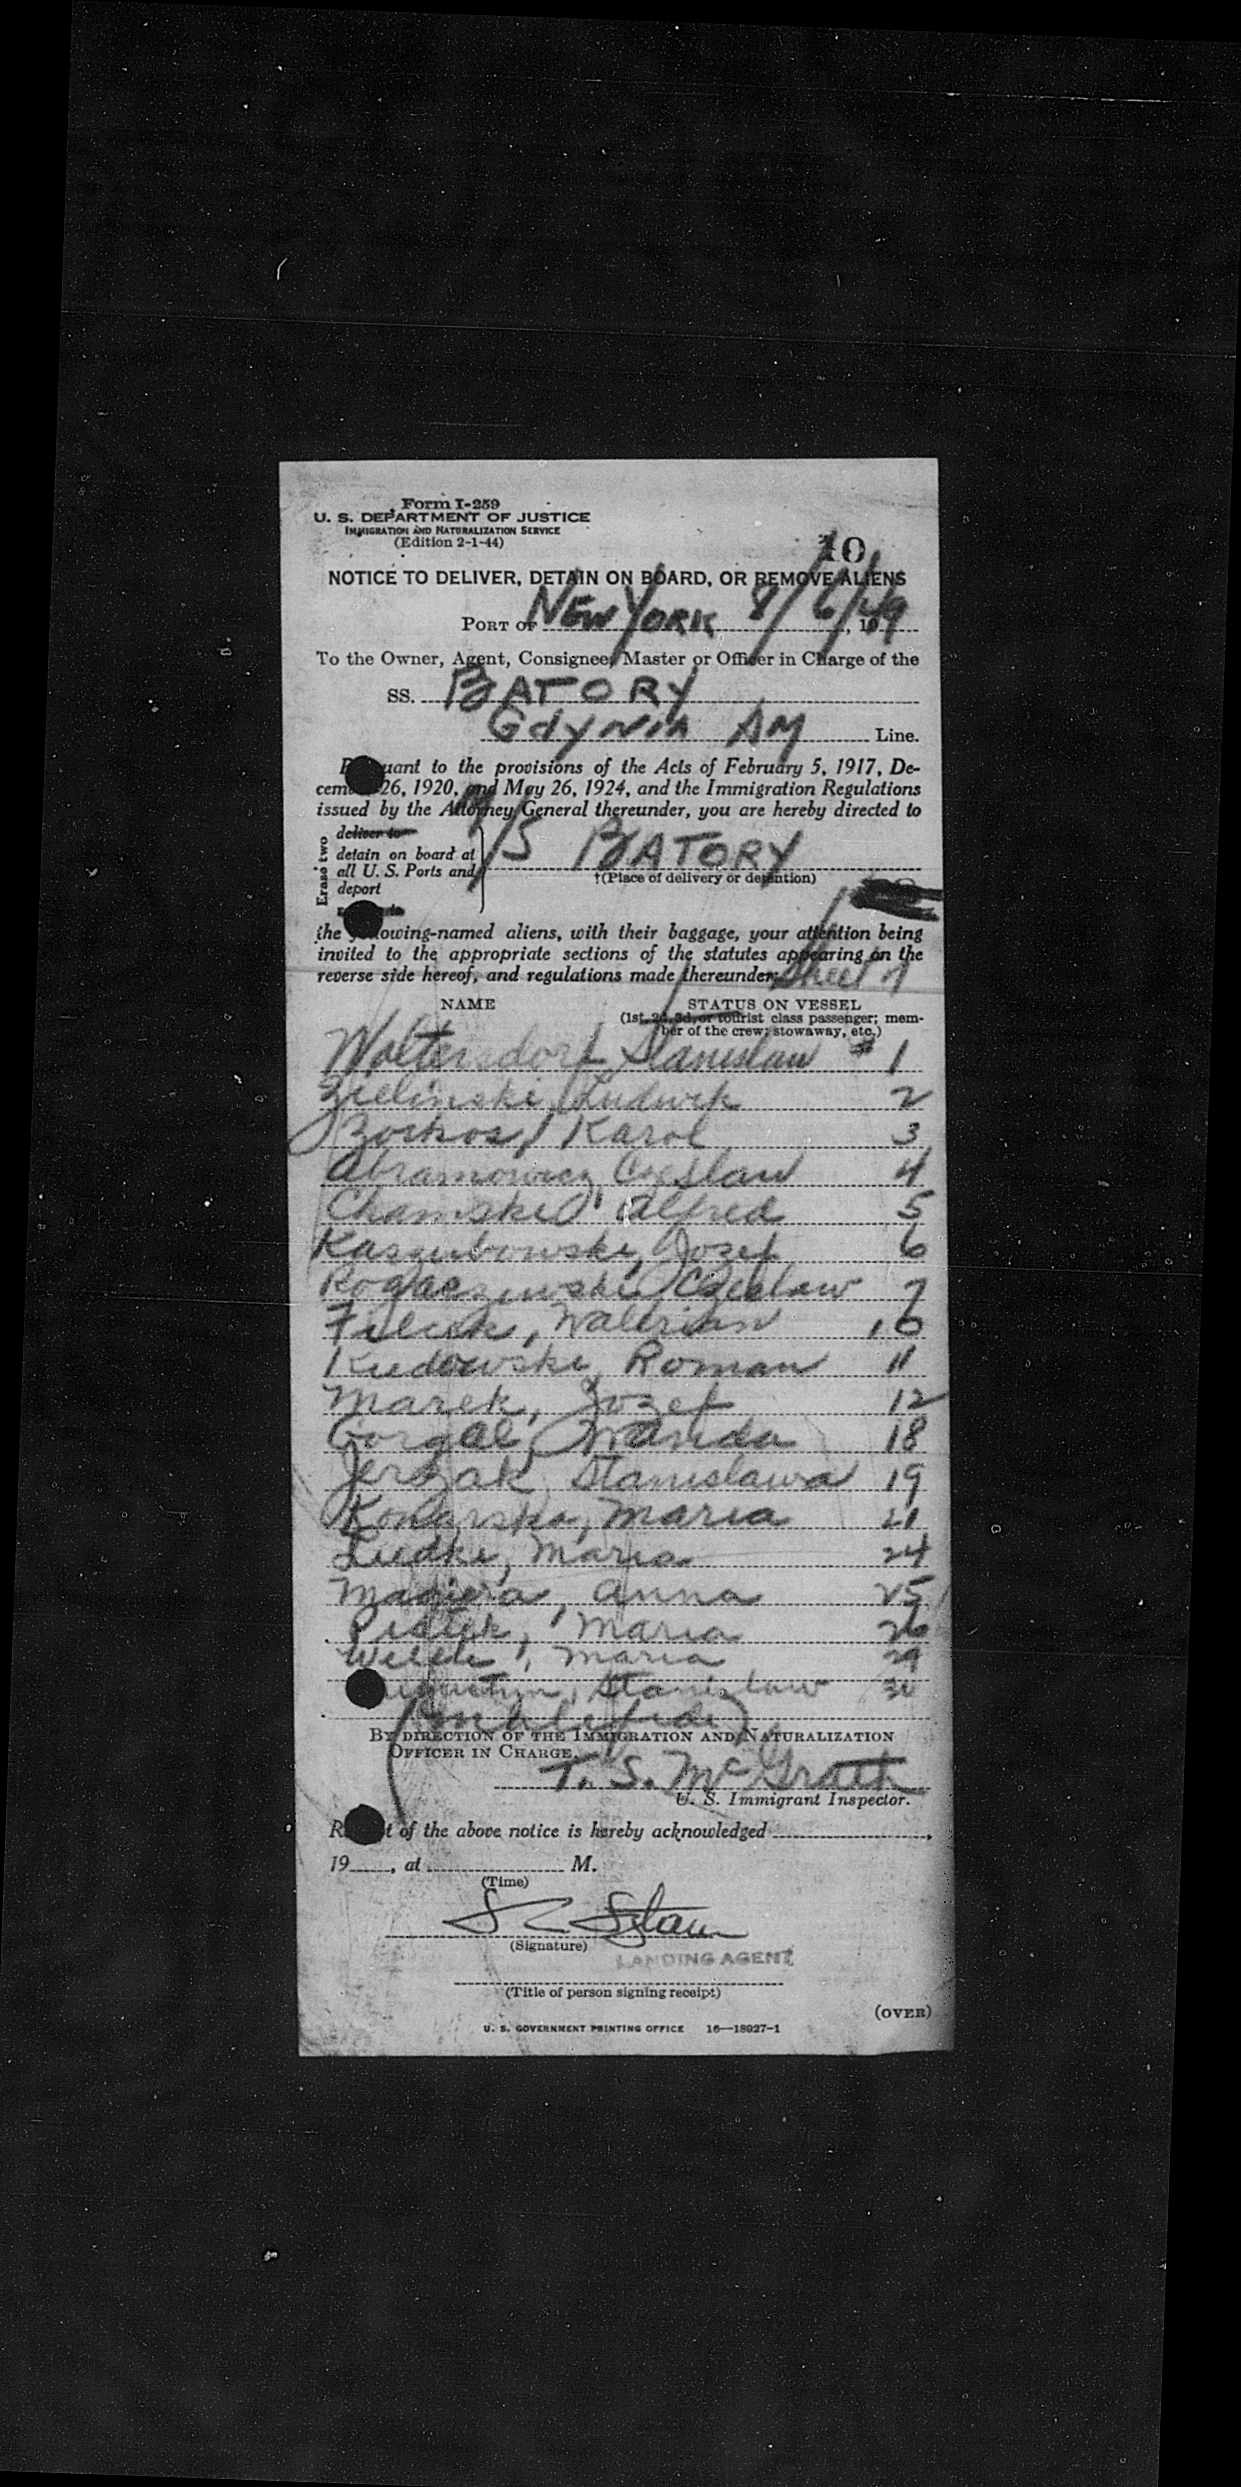 Form I-259
U. S. DEPARTMENT OF JUSTICE
IMMIGRATION AND NATURALIZATION SERVICE
(Edition 2-1-44)
10
NOTICE TO DELIVER, DETAIN ON BOARD, OR REMOVE ALIENS
PORT OF NEW YORK 8/6/49, 19
To the Owner, Agent, Consignee, Master or Officer in Charge of the
SS. BATORY
GdyNIA AM Line.
uant to the provisions of the Acts of February 5, 1917, De-
cem 26, 1920, and May 26, 1924, and the Immigration Regulations
issued by the Attorney General thereunder, you are hereby directed to
Erase two
deliver to
detain on board at
all U. S. Ports and
deport
M/S BATORY
†(Place of delivery or detention)
the following-named aliens, with their baggage, your attention being
invited to the appropriate sections of the statutes appearing on the
reverse side hereof, and regulations made thereunder: Sheet 1
NAME STATUS ON VESSEL
(1st, 2d, 3d, or tourist class passenger; mem-
ber of the crew; stowaway, etc.)
Woltersdorf, Stanislaw # 1
Zielinski, Ludwik 2
Karol 3
Abramowicz, Czeslaw 4
Chamski, Alfred 5
Kaszubowski, Jozef 6
Rogaczewski, Czeslaw 7
Filcek, Walerian 10
Kudowski, Roman 11
Marek, Jozef 12
Gorgal, Wanda 18
Jerzak, Stanislawa 19
Konarska, Maria 21
Liedke, Maria 24
Magiera, Anna 25
Piatek, Maria 26
Maria 29
Stanislaw
BY DIRECTION OF THE IMMIGRATION AND NATURALIZATION
OFFICER IN CHARGE.
T. S. McGrath
U. S. Immigrant Inspector.
R t of the above notice is hereby acknowledged ,
19 , at M.
(Time)
(Signature)
LANDING AGENT
(Title of person signing receipt)
(OVER)
U. S. GOVERNMENT PRINTING OFFICE 16—18927-1